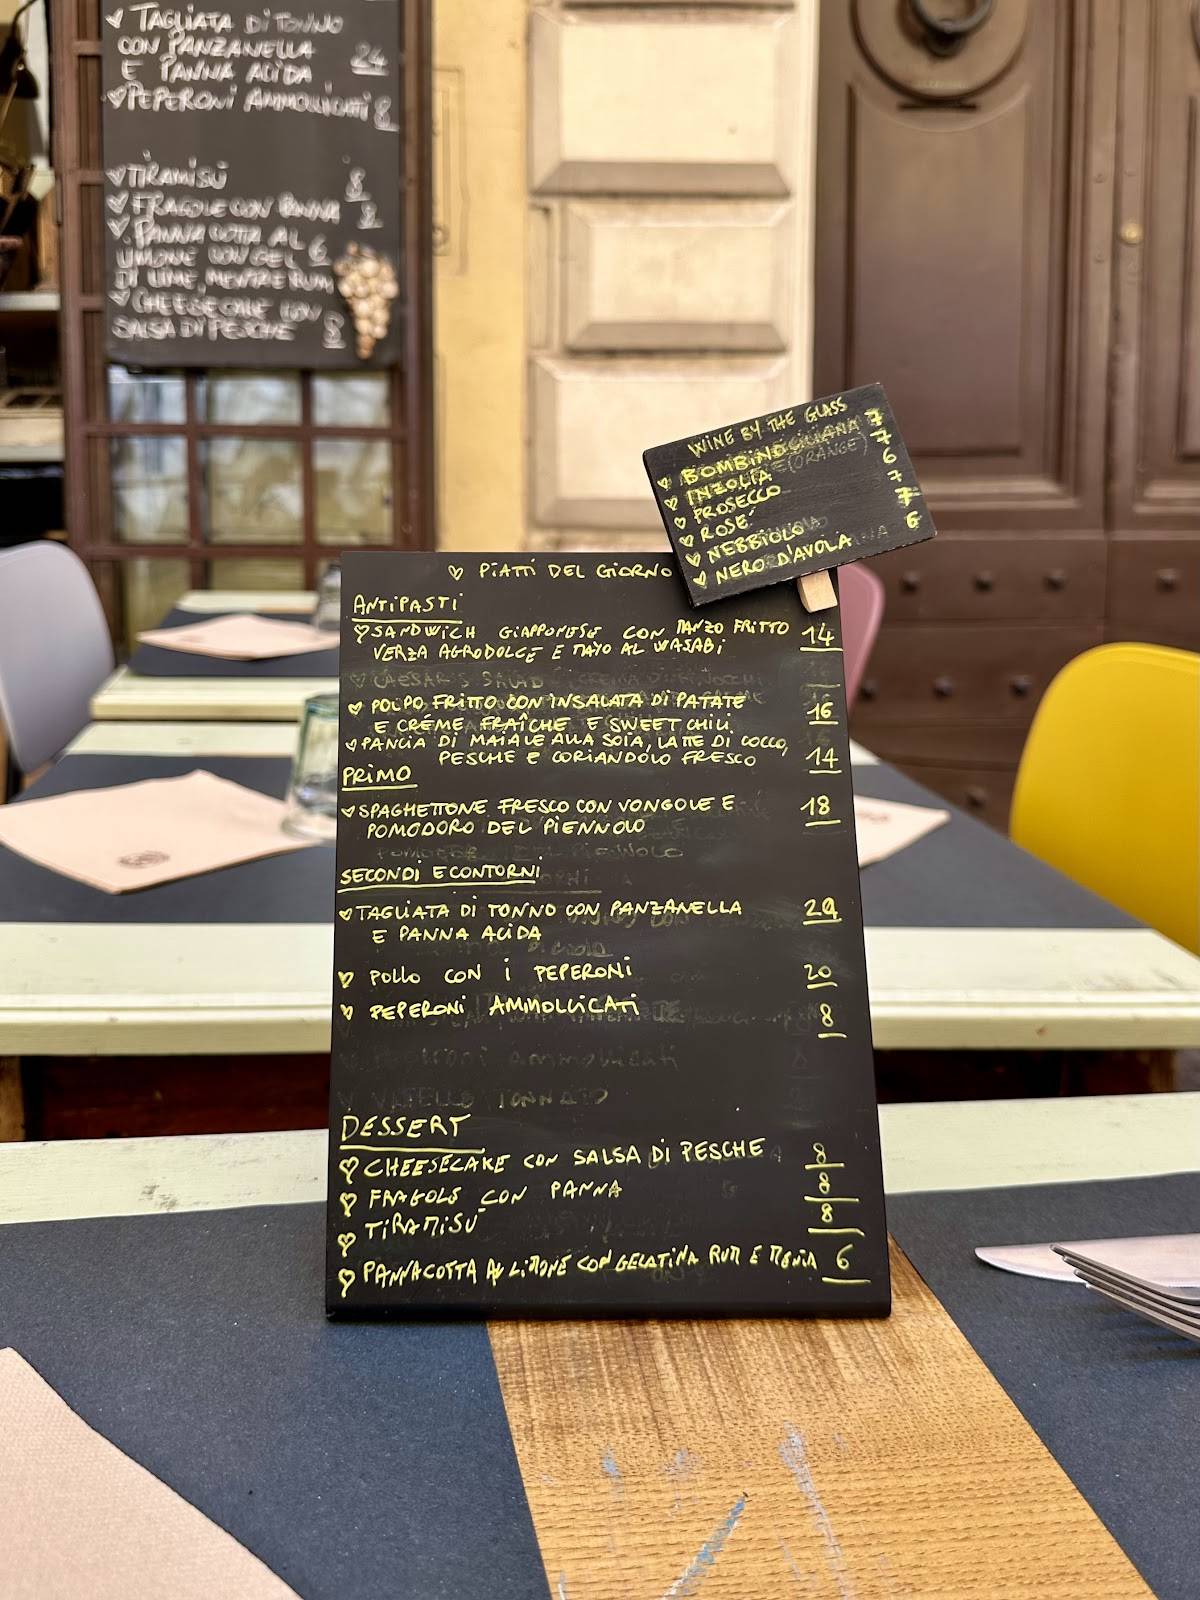 TAGLIATA DI TONNO
CON PANZANELLA
E PANNA ACIDA 24
PEPERONI AMMOLLICATI 8
TIRAMISÚ 8
FRAGOLE CON PANNA 8
PANNA COTTA AL 6
LIMONE CON GEL
DI LIME, MENTA E RUM
CHEESECAKE CON
SALSA DI PESCHE 8
WINE BY THE GLASS
BOMBINO 7
INZOLIA 7
PROSECCO 6
ROSE' 7
NEBBIOLO 7
NERO D'AVOLA 6
PIATTI DEL GIORNO
ANTIPASTI
SANDWICH GIAPPONESE CON MANZO FRITTO 14
VERZA AGRODOLCE E MAYO AL WASABI
CAESAR'S SALAD
POLPO FRITTO CON INSALATA DI PATATE 16
E CRÉME FRAÎCHE E SWEET CHILI
PANCIA DI MAIALE ALLA SOIA, LATTE DI COCCO, 14
PESCHE E CORIANDOLO FRESCO
PRIMO
SPAGHETTONE FRESCO CON VONGOLE E 18
POMODORO DEL PIENNOLO
SECONDI E CONTORNI
TAGLIATA DI TONNO CON PANZANELLA 24
E PANNA ACIDA
POLLO CON I PEPERONI 20
PEPERONI AMMOLLICATI 8
Peperoni ammollicati
VITELLO TONNATO
DESSERT
CHEESECAKE CON SALSA DI PESCHE 8
FRAGOLE CON PANNA 8
TIRAMISÚ 8
PANNACOTTA AL LIMONE CON GELATINA RUM E MENTA 6